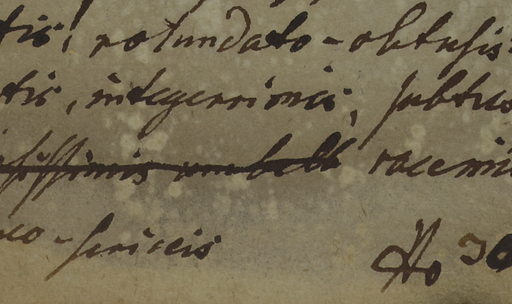 tis, rotundato-obtusis
tis, integerrimis, subtus
issimis umbell racemis
co-sericeis Ho 30